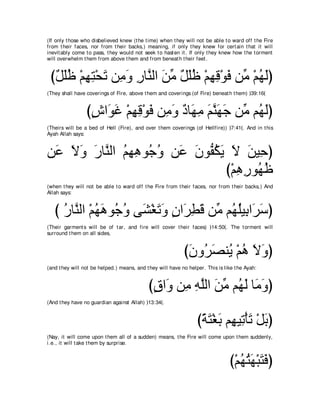 (If only those who disbelieved knew (the time) when they will not be able to ward off the Fire
from their faces, nor from their backs,) meaning, if only they knew for certain that it will
inevitably come to pass, they would not seek to hasten it. If only they knew how the torment
will overwhelm them from above them and from beneath their feet.
(لَهُمْ مِّن فَوْقِهِمْ ظُلَلٌ مِّنَ النَّارِ وَمِن تَحْتِهِمْ ظُلَلٌ)
(They shall have coverings of Fire, above them and coverings (of Fire) beneath them) [39:16]
(لَهُم مِّن جَهَنَّمَ مِهَادٌ وَمِن فَوْقِهِمْ غَوَاشٍ)
(Theirs will be a bed of Hell (Fire), and over them coverings (of Hellfire)) [7:41]. And in this
Ayah Allah says:
(حِينَ لاَ يَكُفُّونَ عَن وُجُوهِهِمُ النَّارَ وَلاَ عَن
ظُهُورِهِمْ)
(when they will not be able to ward off the Fire from their faces, nor from their backs,) And
Allah says:
(سَرَابِيلُهُم مِّن قَطِرَانٍ وَتَغْشَى وُجُوهَهُمْ النَّارُ )
(Their garments will be of tar, and fire will cover their faces) [14:50]. The torment will
surround them on all sides,
(وَلاَ هُمْ يُنصَرُونَ)
(and they will not be helped.) means, and they will have no helper. This is like the Ayah:
(وَمَا لَهُم مِّنَ اللَّهِ مِن وَاقٍ)
(And they have no guardian against Allah) [13:34].
(بَلْ تَأْتِيهِم بَغْتَةً)
(Nay, it will come upon them all of a sudden) means, the Fire will come upon them suddenly,
i.e., it will take them by surprise.
(فَتَبْهَتُهُمْ)